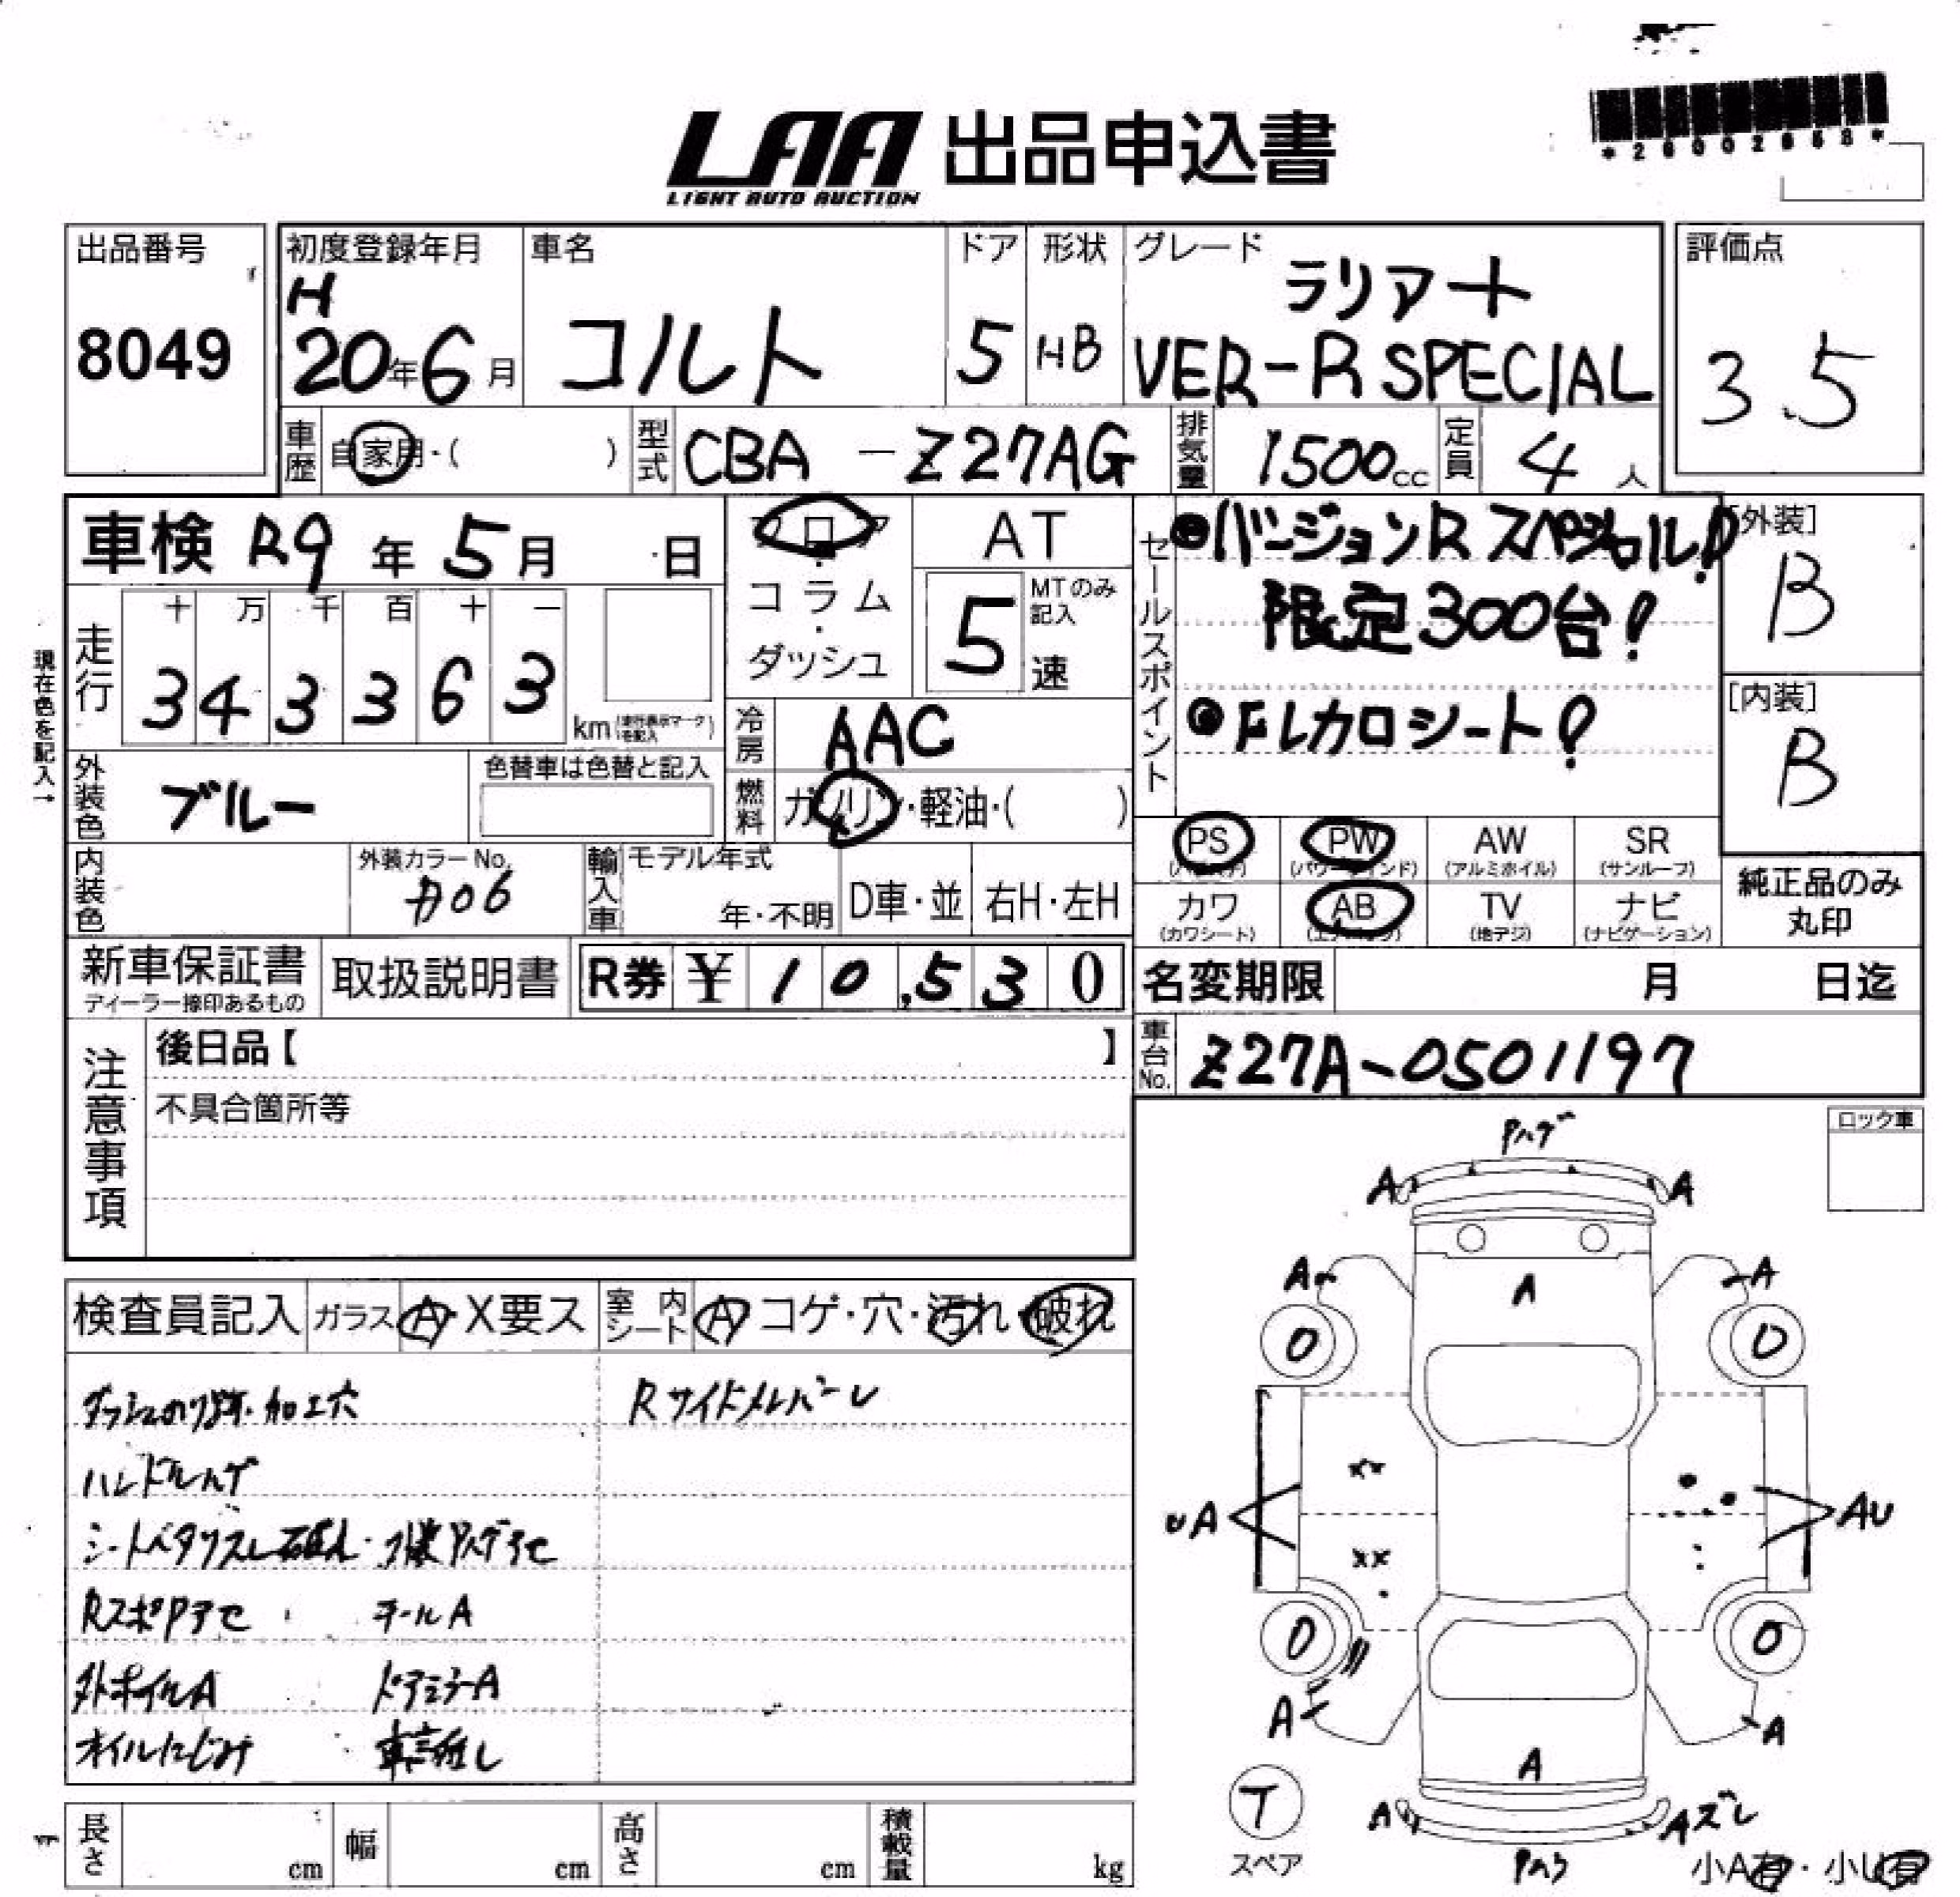 LAA 出品申込書
LIGHT AUTO AUCTION
出品番号
8049
初度登録年月
H
20年6月
車名
コルト
ドア
5
形状
HB
グレード
ラリアート
VER-R SPECIAL
評価点
3.5
車歴
自家用・( )
型式
CBA -Z27AG
排気量
1500cc
定員
4人
車検 R9年5月 日
フロア
・
コラム
・
ダッシュ
AT
5
MTのみ
記入
速
セールスポイント
バージョンR スペシャル!
限定300台!
レカロシート!
[外装]
B
[内装]
B
現在色を記入→
走行
十 万 千 百 十 一
3 4 3 3 6 3
km
冷房
AAC
外装色
ブルー
色替車は色替と記入
燃料
ガソリン・軽油・( )
PS PW AW SR
(パワーウインド) (アルミホイル) (サンルーフ)
カワ AB TV ナビ
(カワシート) (エアバッグ) (地デジ) (ナビゲーション)
純正品のみ
丸印
内装色
外装カラーNo.
D06
輸入車
モデル年式
年・不明
D車・並
右H・左H
新車保証書
ディーラー捺印あるもの
取扱説明書
R券 ¥ 10,530
名変期限 月 日迄
注意事項
後日品【 】
不具合箇所等
車台No.
Z27A-0501197
ロック車
検査員記入
ガラス A・X要ス
室内シート A コゲ・穴・汚れ・破れ
ダッシュのり跡・加工穴
Rサイドメンバーレ
ハンドルハゲ
Rスポアセ
外ホイルA
ドアミラーA
オイルにじみ
Pハゲ
A A
A A
A
0 0
XX
UA AU
XX
0 0
A A
A
A Aズレ
T
スペア
小A有・小U有
長さ cm
幅 cm
高さ cm
積載量 kg